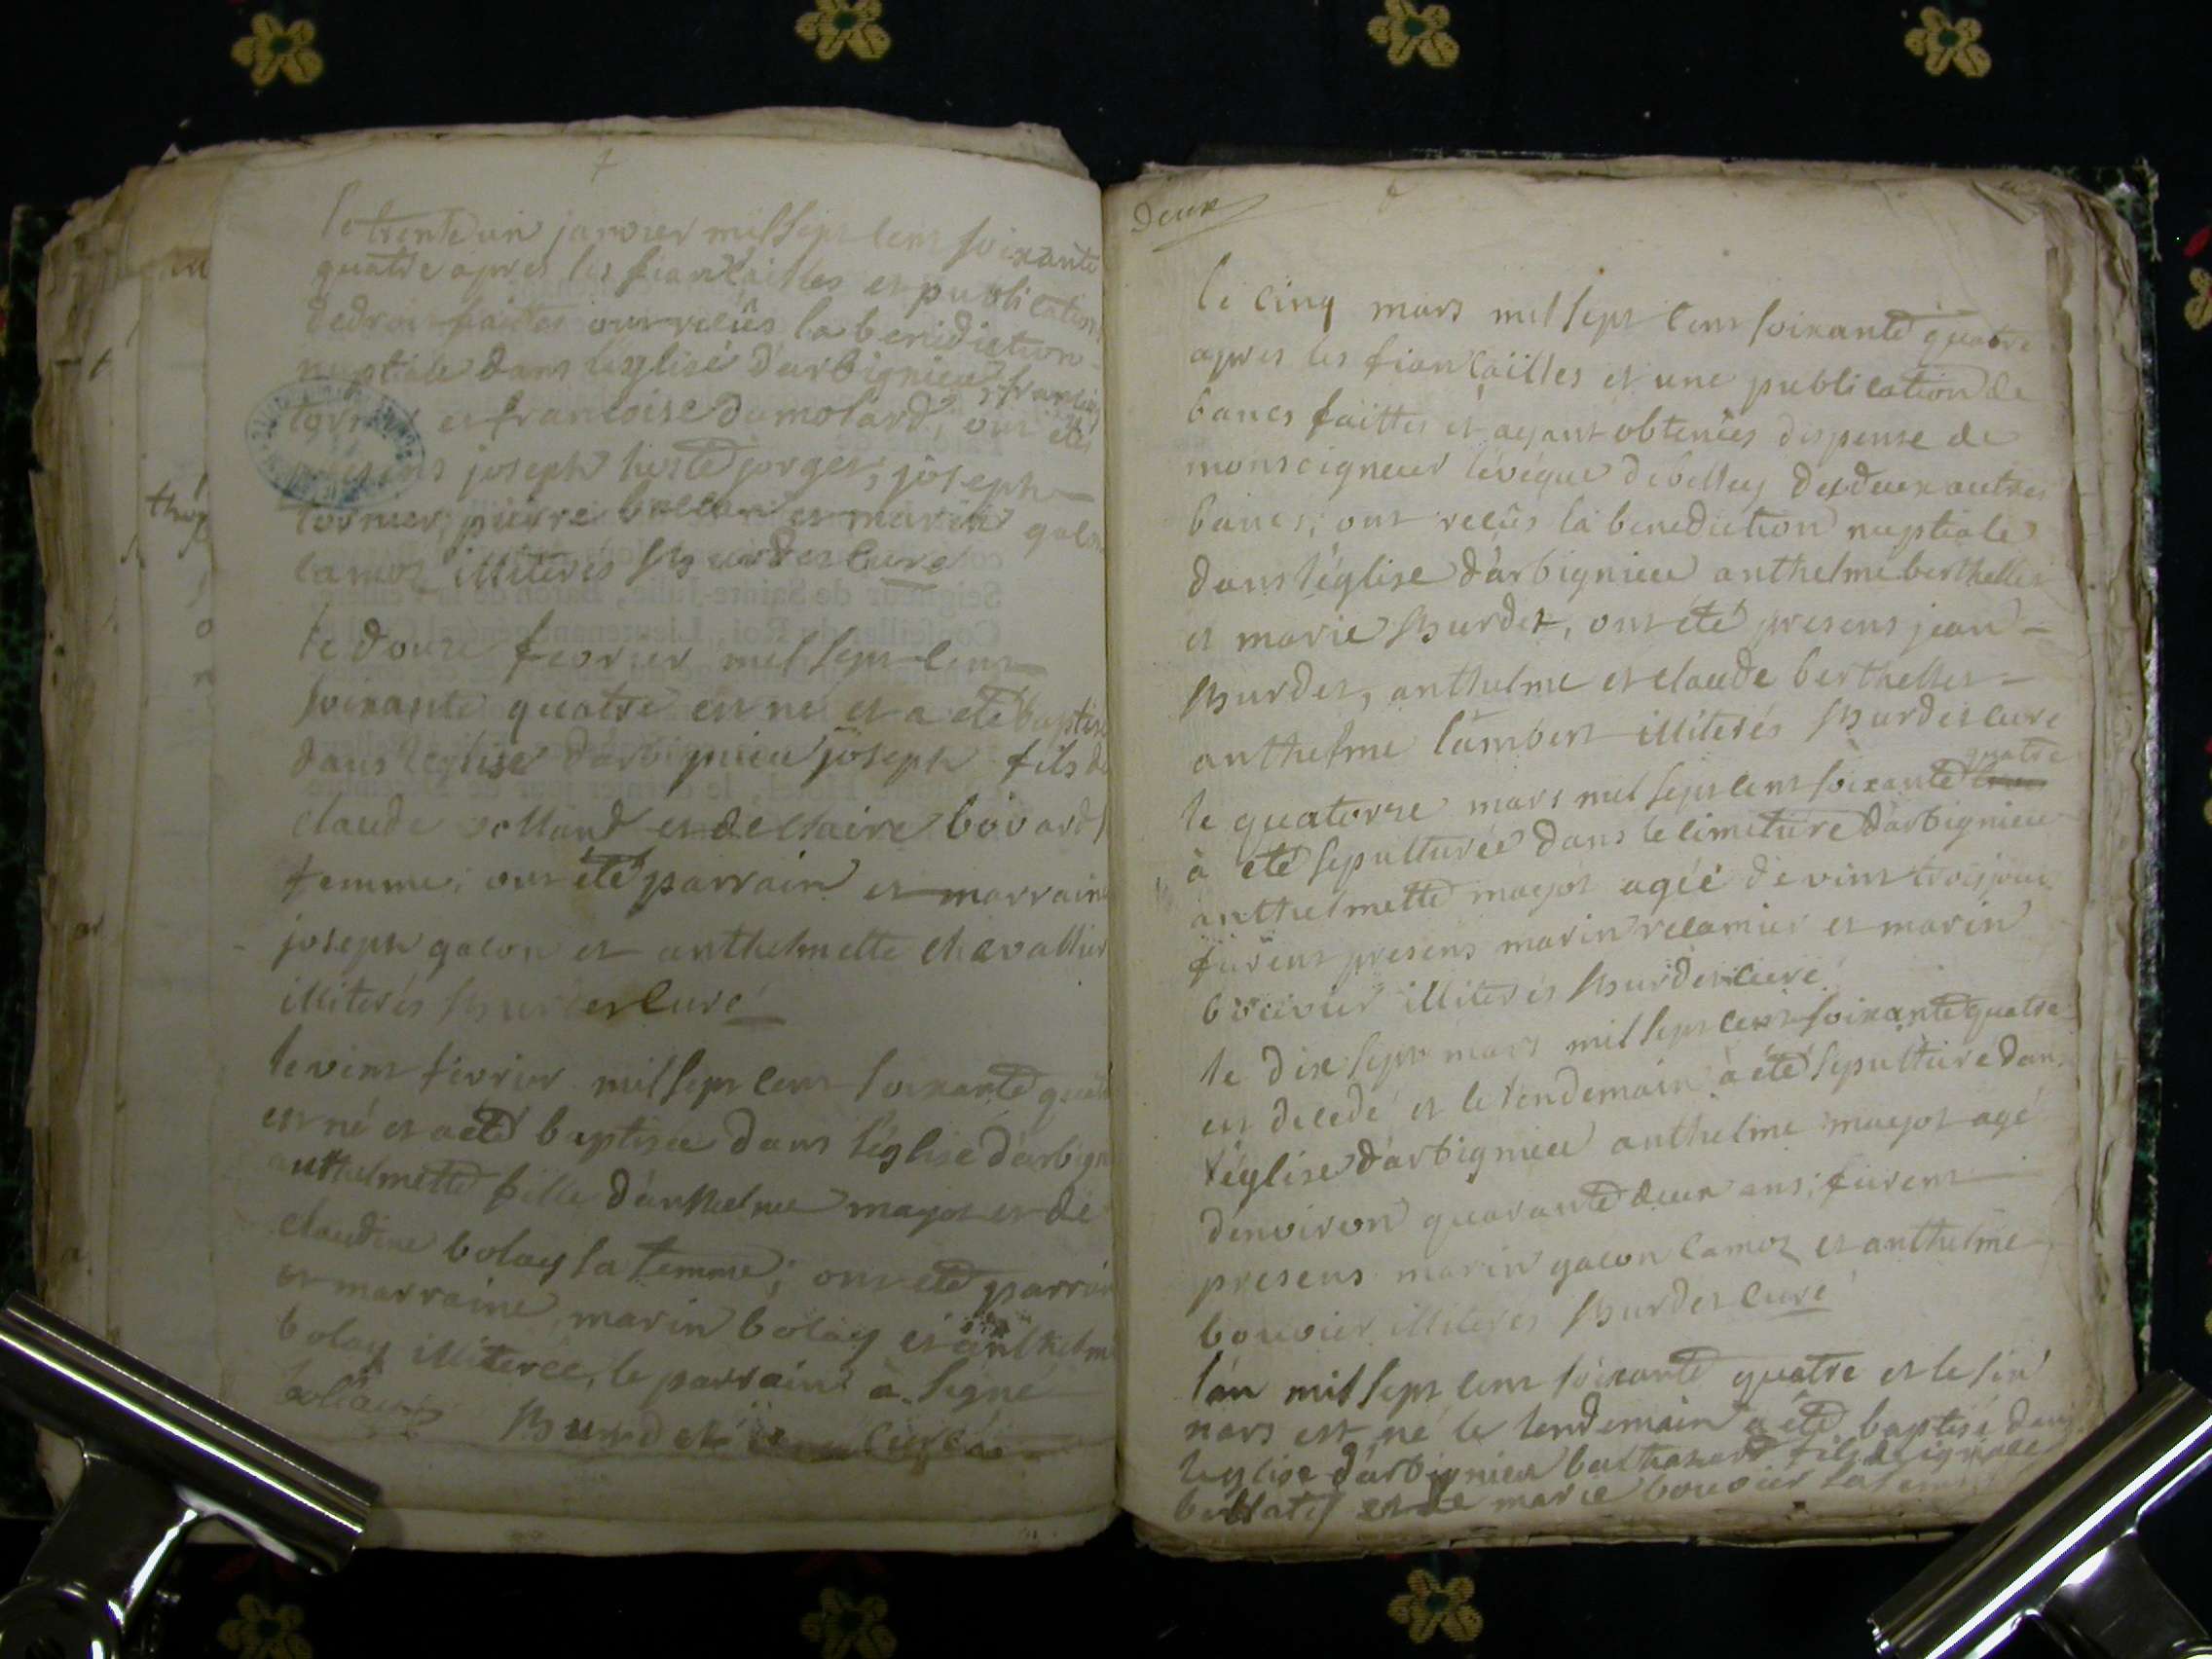 le trente un janvier mil sept cent soixante
quatre apres les fiancailles et publications
de droit faittes ont reçûs la benediction
nuptiale dans l'eglise d'arbignieu françois
tornier et francoise dumolard, ont été
presens joseph jorget, joseph
tornier, pierre et marin galon
camoz illiterés hurdet curé
le douze fevrier mil sept cent
soixante quatre est né et a eté baptisé
dans l'eglise d'arbignieu joseph fils de
claude volland et de claire bovard
femme; ont été parrain et marraine
joseph gacon et anthelmette chavallier
illiterés hurdet curé
le vint fevrier mil sept cent soixante quatre
est né et a été baptisée dans l'église d'arbign
anthelmette fille d'anthelme mayot et de
claudine bolay sa femme; ont été parrain
et marraine marin bolay et anthelme
bolay illiterée, le parrain à signé
hurdet curé
Deux
le cinq mars mil sept cent soixante quatre
apres les fiancäilles et une publication de
bancs faittes et ayant obtenües dispense de
monseigneur l'évéque de belley des deux autres
bancs, ont reçûs la benediction nuptiale
dans l'église d'arbignieu anthelme berthellet
et marie hurdet, ont été presens jean
hurdet, anthelme et claude berthellet
anthelme lambert illiterés hurdet curé
quatre
le quatorze mars mil sept cent soixante
à eté sepulturée dans le cimetiere d'arbignieu
anthelmette mayot agéé de vint trois jours
furent presens marin recamier et marin
bouvier illiterés hurdet curé
le dix sept mars mil sept cent soixante quatre
est decedé et le lendemain à été sepulturé dans
l'église d'arbignieu anthelme mayot agé
d'environ quarante deux ans; furent
presens marin gacon camoz et anthelme
bouvier illiterés hurdet curé
l'an mil sept cent soixante quatre et le
mars est né le lendemain a été baptisé dans
l'eglise d'arbignieu balthazard fils de
et de marie bouvier sa femme